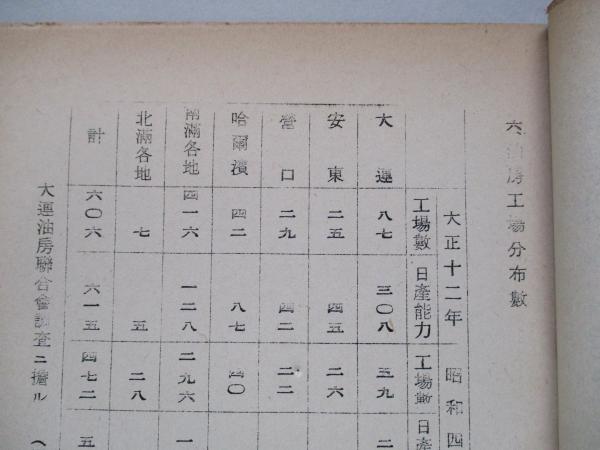 六、油房工場分布數
大正十二年 昭和四
工場數 日產能力 工場數 日產
大連 八七 三〇八 五九 二
安東 二五 四五 二六
營口 二九 四二 二二
哈爾濱 四二 八七 四〇
南滿各地 四一六 一二八 二九六 一
北滿各地 七 五 二八
計 六〇六 六一五 四七二 五
大連油房聯合會調査ニ擔ル（